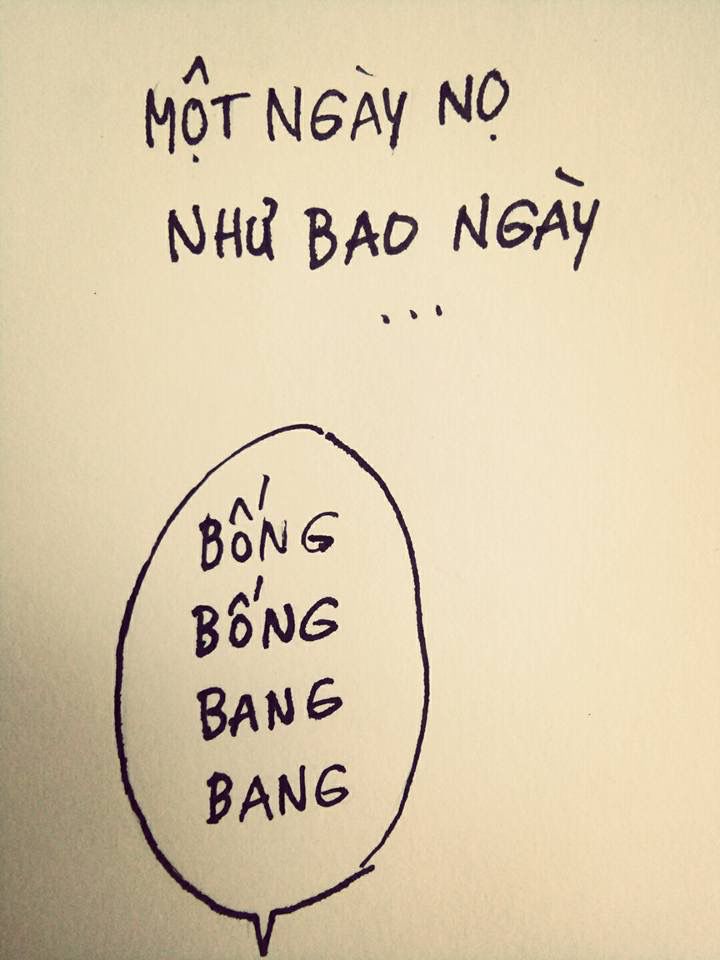 MỘT NGÀY NỌ
NHƯ BAO NGÀY
...
BỐNG
BỐNG
BANG
BANG